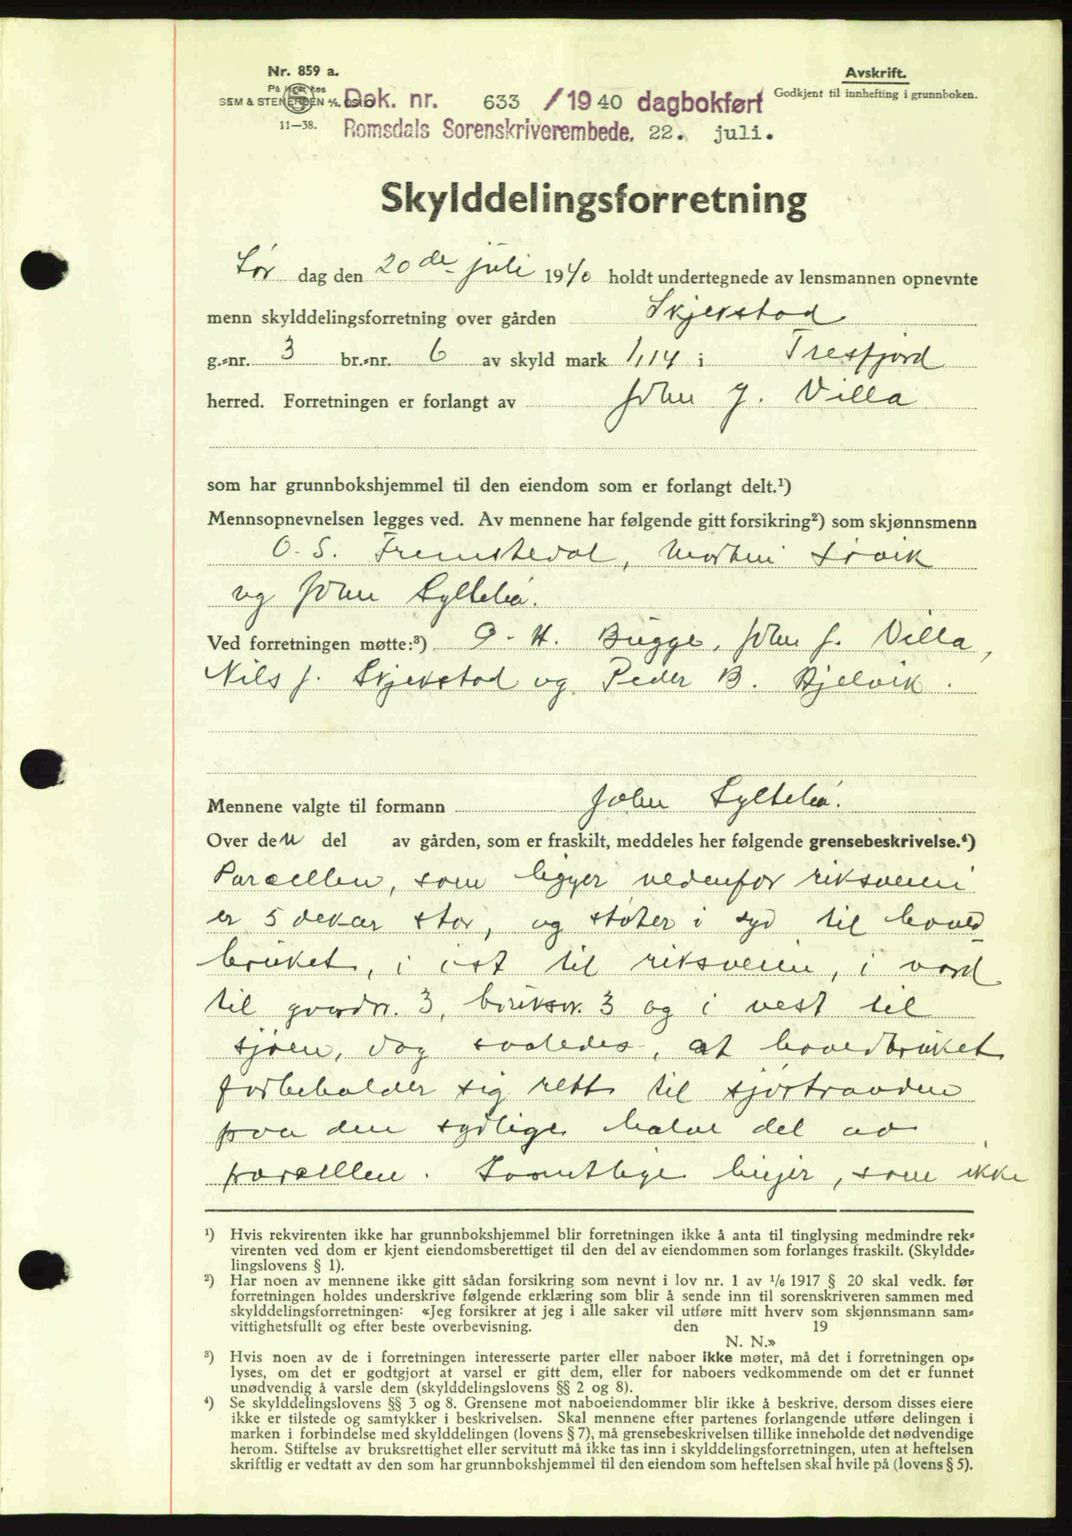 Nr. 859 a.
På lager hos
SEM & STENERSEN A/S, OSLO
11—38.
Avskrift.
Godkjent til innhefting i grunnboken.
Dok. nr. 633 /1940 dagbokført
Romsdals Sorenskriverembede. 22. juli.
Skylddelingsforretning
Lør dag den 20de juli 1940 holdt undertegnede av lensmannen opnevnte
menn skylddelingsforretning over gården Skjerstad
g.-nr. 3 br.-nr. 6 av skyld mark 1,14 i Tresfjord
herred. Forretningen er forlangt av John J. Villa
som har grunnbokshjemmel til den eiendom som er forlangt delt.¹)
Mennsopnevnelsen legges ved. Av mennene har følgende gitt forsikring²) som skjønnsmenn
O. S. Fremstedal, Morten Løvik
og John Syltebø.
Ved forretningen møtte:³) O. H. Bugge, John J. Villa,
Nils J. Skjerstad og Peder B. Hjelvik.
Mennene valgte til formann John Syltebø.
Over den del av gården, som er fraskilt, meddeles her følgende grensebeskrivelse.⁴)
Parcellen, som ligger nedenfor riksveien
er 5 dekar stor, og støter i syd til hoved
bruket, i øst til riksveien, i nord
til gardnr. 3, bruksnr. 3 og i vest til
sjøen, dog saaledes, at hovedbruket
forbeholder sig rett til sjøstranden
paa den sydlige halve del av
parcellen. Samtlige linjer, som ikke
¹) Hvis rekvirenten ikke har grunnbokshjemmel blir forretningen ikke å anta til tinglysing medmindre rek-
virenten ved dom er kjent eiendomsberettiget til den del av eiendommen som forlanges fraskilt. (Skyldde-
lingslovens § 1).
²) Har noen av mennene ikke gitt sådan forsikring som nevnt i lov nr. 1 av 1/6 1917 § 20 skal vedk. før
forretningen holdes underskrive følgende erklæring som blir å sende inn til sorenskriveren sammen med
skylddelingsforretningen: «Jeg forsikrer at jeg i alle saker vil utføre mitt hverv som skjønnsmann sam-
vittighetsfullt og efter beste overbevisning. den 19
N. N.»
³) Hvis noen av de i forretningen interesserte parter eller naboer ikke møter, må det i forretningen op-
lyses, om det er godtgjort at varsel er gitt dem, eller for naboers vedkommende om det er funnet
unødvendig å varsle dem (skylddelingslovens §§ 2 og 8).
⁴) Se skylddelingslovens §§ 3 og 8. Grensene mot naboeiendommer blir ikke å beskrive, dersom disses eiere
ikke er tilstede og samtykker i beskrivelsen. Skal mennene efter partenes forlangende utføre delingen i
marken i forbindelse med skylddelingen (lovens § 7), må grensebeskrivelsen tillike inneholde det nødvendige
herom. Stiftelse av bruksrettighet eller servitutt må ikke tas inn i skylddelingsforretningen, uten at heftelsen
skriftlig er vedtatt av den som har grunnbokshjemmel til den eiendom som heftelsen skal hvile på (lovens § 5).